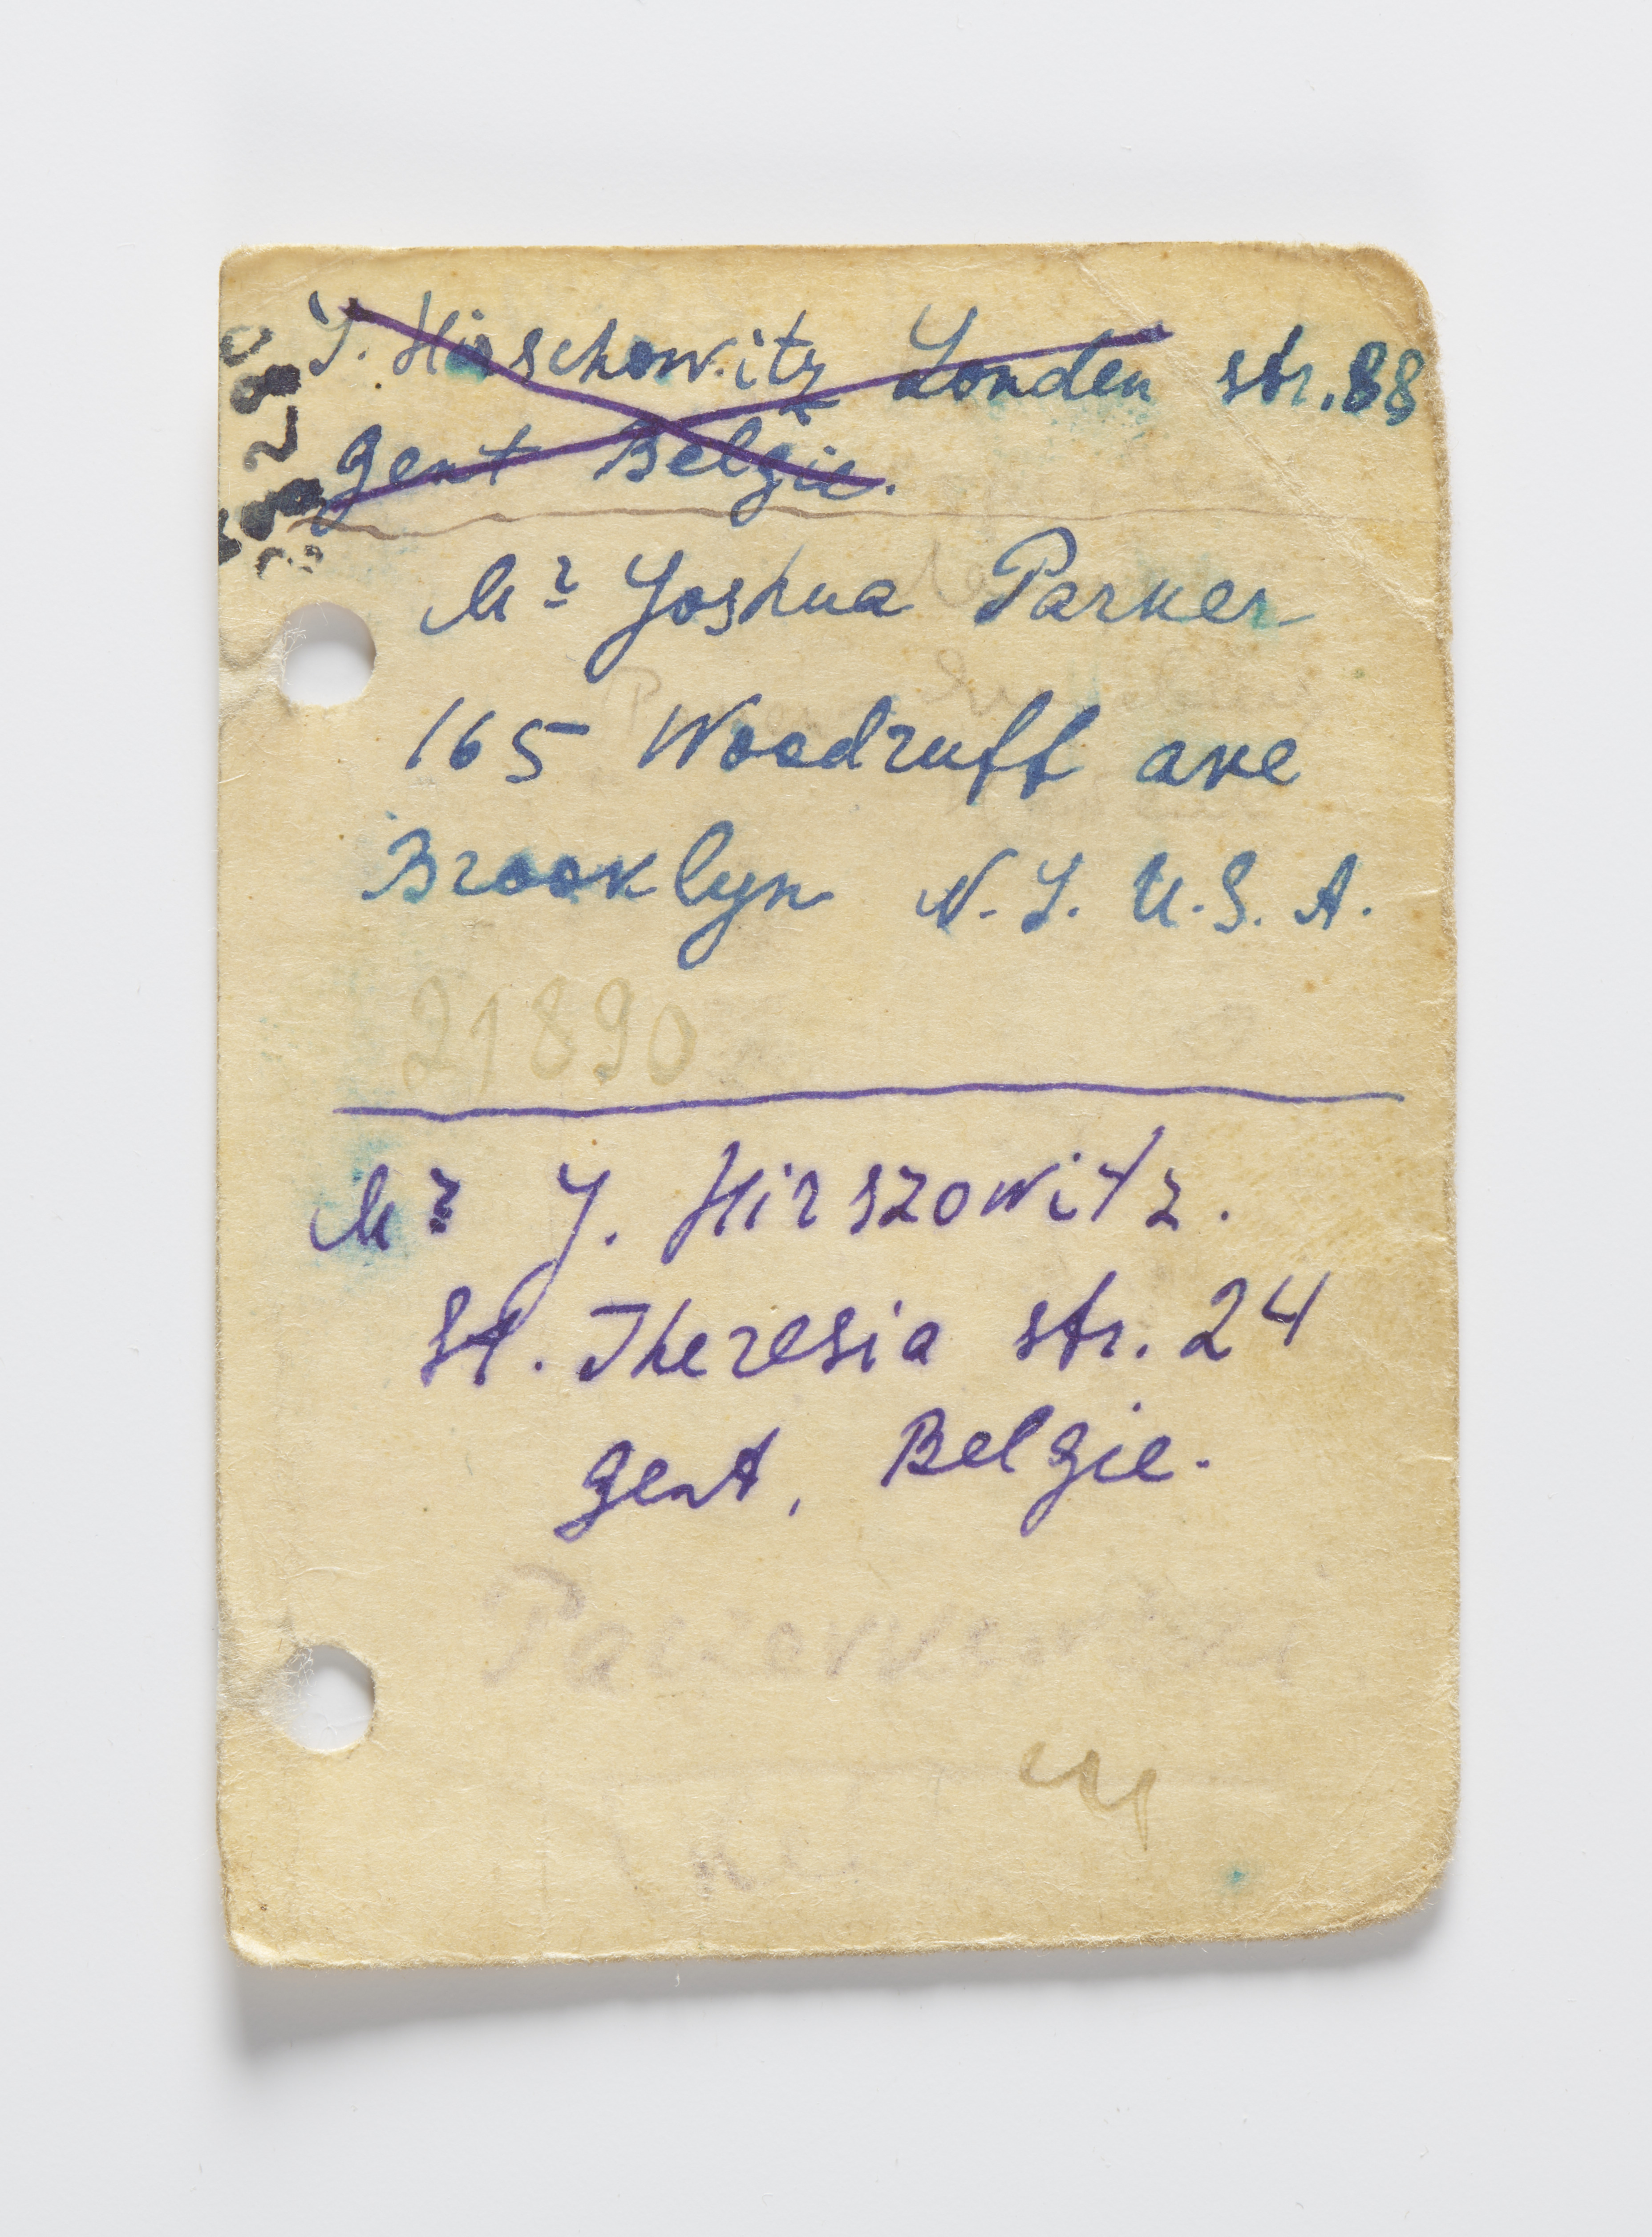 J. Hirschowitz Londen str. 88
Gent Belgie.
Mr Joshua Parker
165 Woodruff ave
Brooklyn N.Y. U.S.A.
21890
Mr J. Hirszowitz.
St. Theresia str. 24
Gent, Belgie.